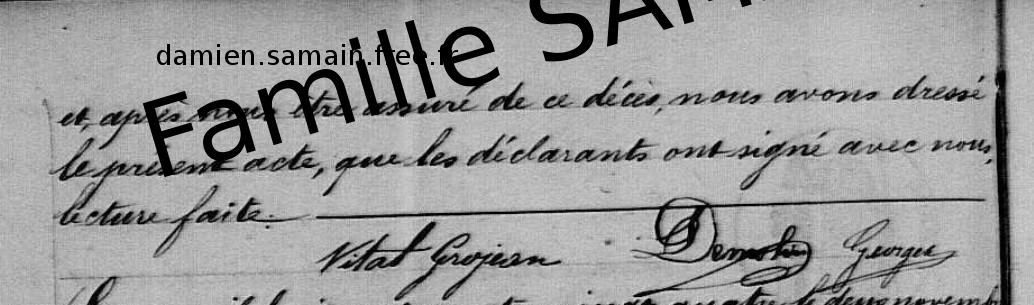 Famille SAM
damien.samain.free.fr
et, après nous être assuré de ce décès, nous avons dressé
le présent acte, que les déclarants ont signé avec nous,
lecture faite.
Vital Grojean Georges
quatre le deux novembre